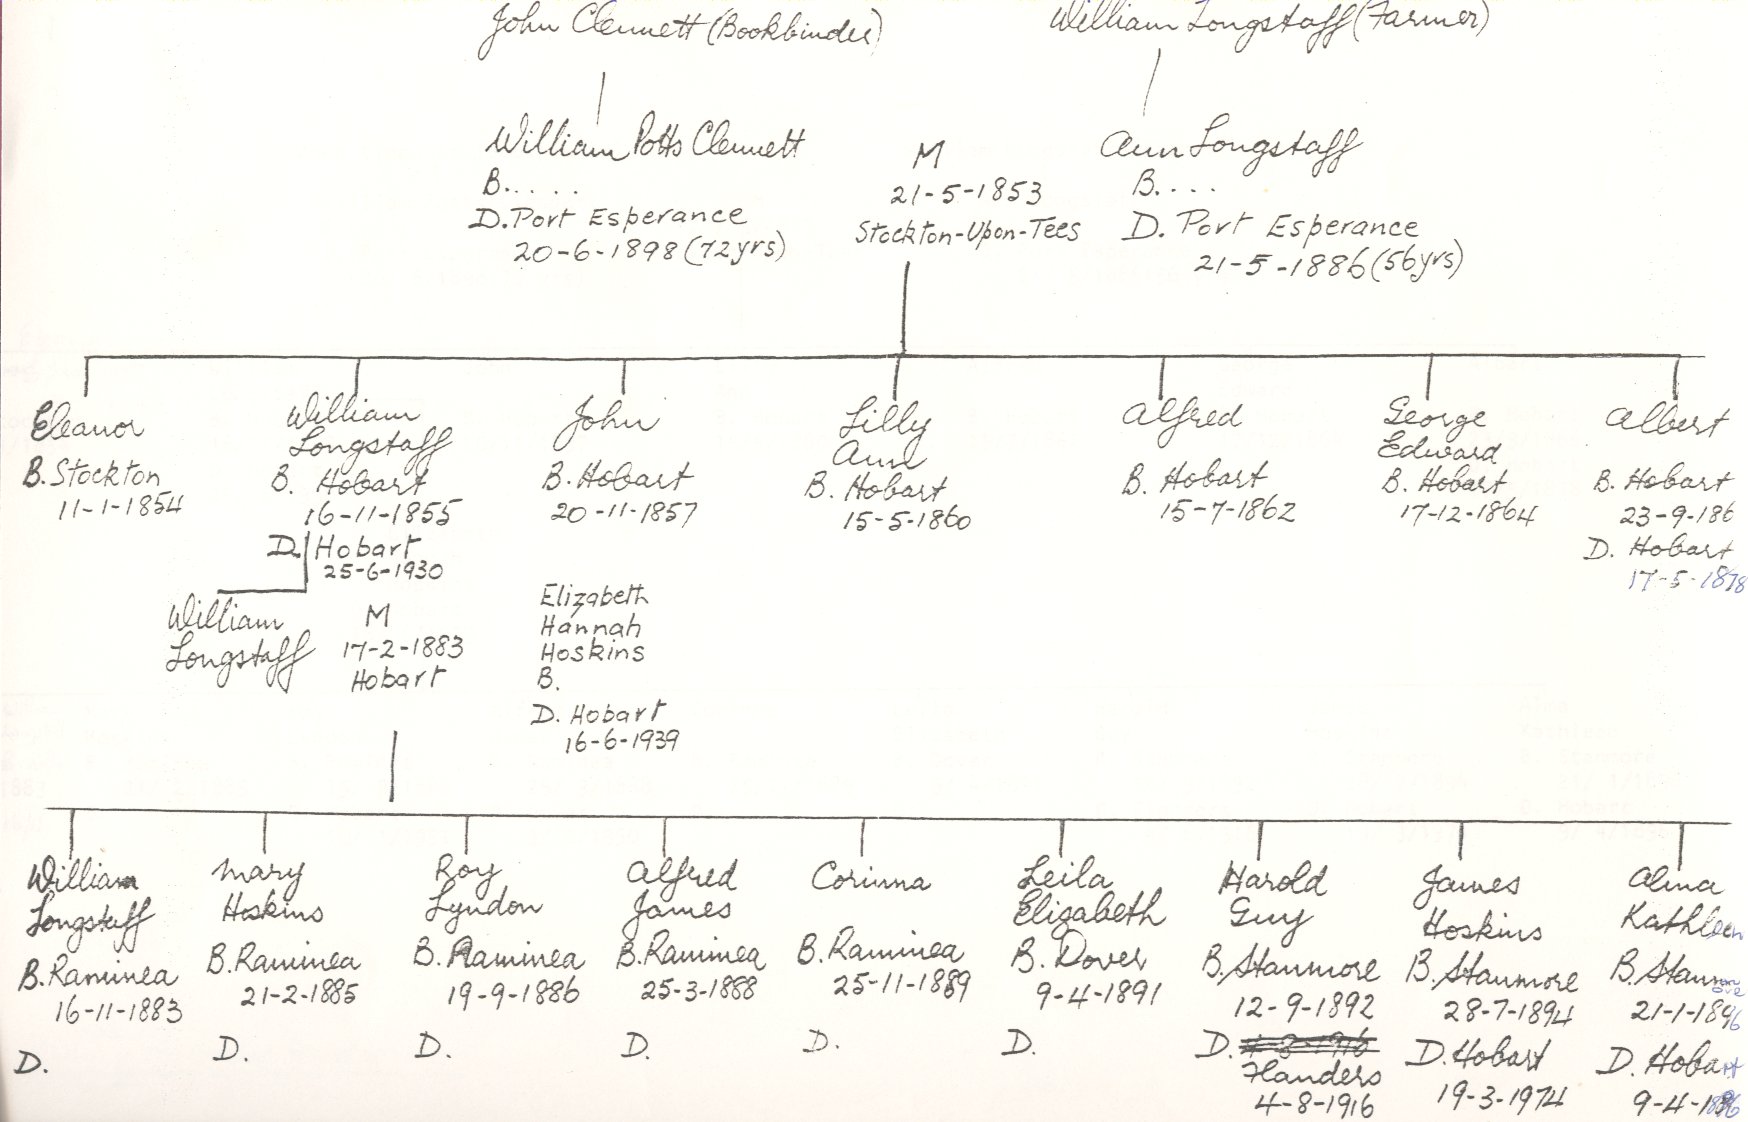 John Clennett (Bookbinder)
William Longstaff (Farmer)
William Potts Clennett
B.....
D. Port Esperance
20-6-1898 (72yrs)
M
21-5-1853
Stockton-Upon-Tees
Ann Longstaff
B....
D. Port Esperance
21-5-1886 (56yrs)
Eleanor
B. Stockton
11-1-1854
William
Longstaff
B. Hobart
16-11-1855
D. Hobart
25-6-1930
John
B. Hobart
20-11-1857
Lilly
Ann
B. Hobart
15-5-1860
Alfred
B. Hobart
15-7-1862
George
Edward
B. Hobart
17-12-1864
Albert
B. Hobart
23-9-186
D. Hobart
17-5-1878
William
Longstaff
M
17-2-1883
Hobart
Elizabeth
Hannah
Hoskins
B.
D. Hobart
16-6-1939
William
Longstaff
B. Raminea
16-11-1883
D.
Mary
Hoskins
B. Raminea
21-2-1885
D.
Roy
Lyndon
B. Raminea
19-9-1886
D.
Alfred
James
B. Raminea
25-3-1888
D.
Corinna
B. Raminea
25-11-1889
D.
Leila
Elizabeth
B. Dover
9-4-1891
D.
Harold
Guy
B. Stanmore
12-9-1892
D.
Flanders
4-8-1916
James
Hoskins
B. Stanmore
28-7-1894
D. Hobart
19-3-1974
Alma
Kathleen
B. Stanmore
21-1-1896
D. Hobart
9-4-1896